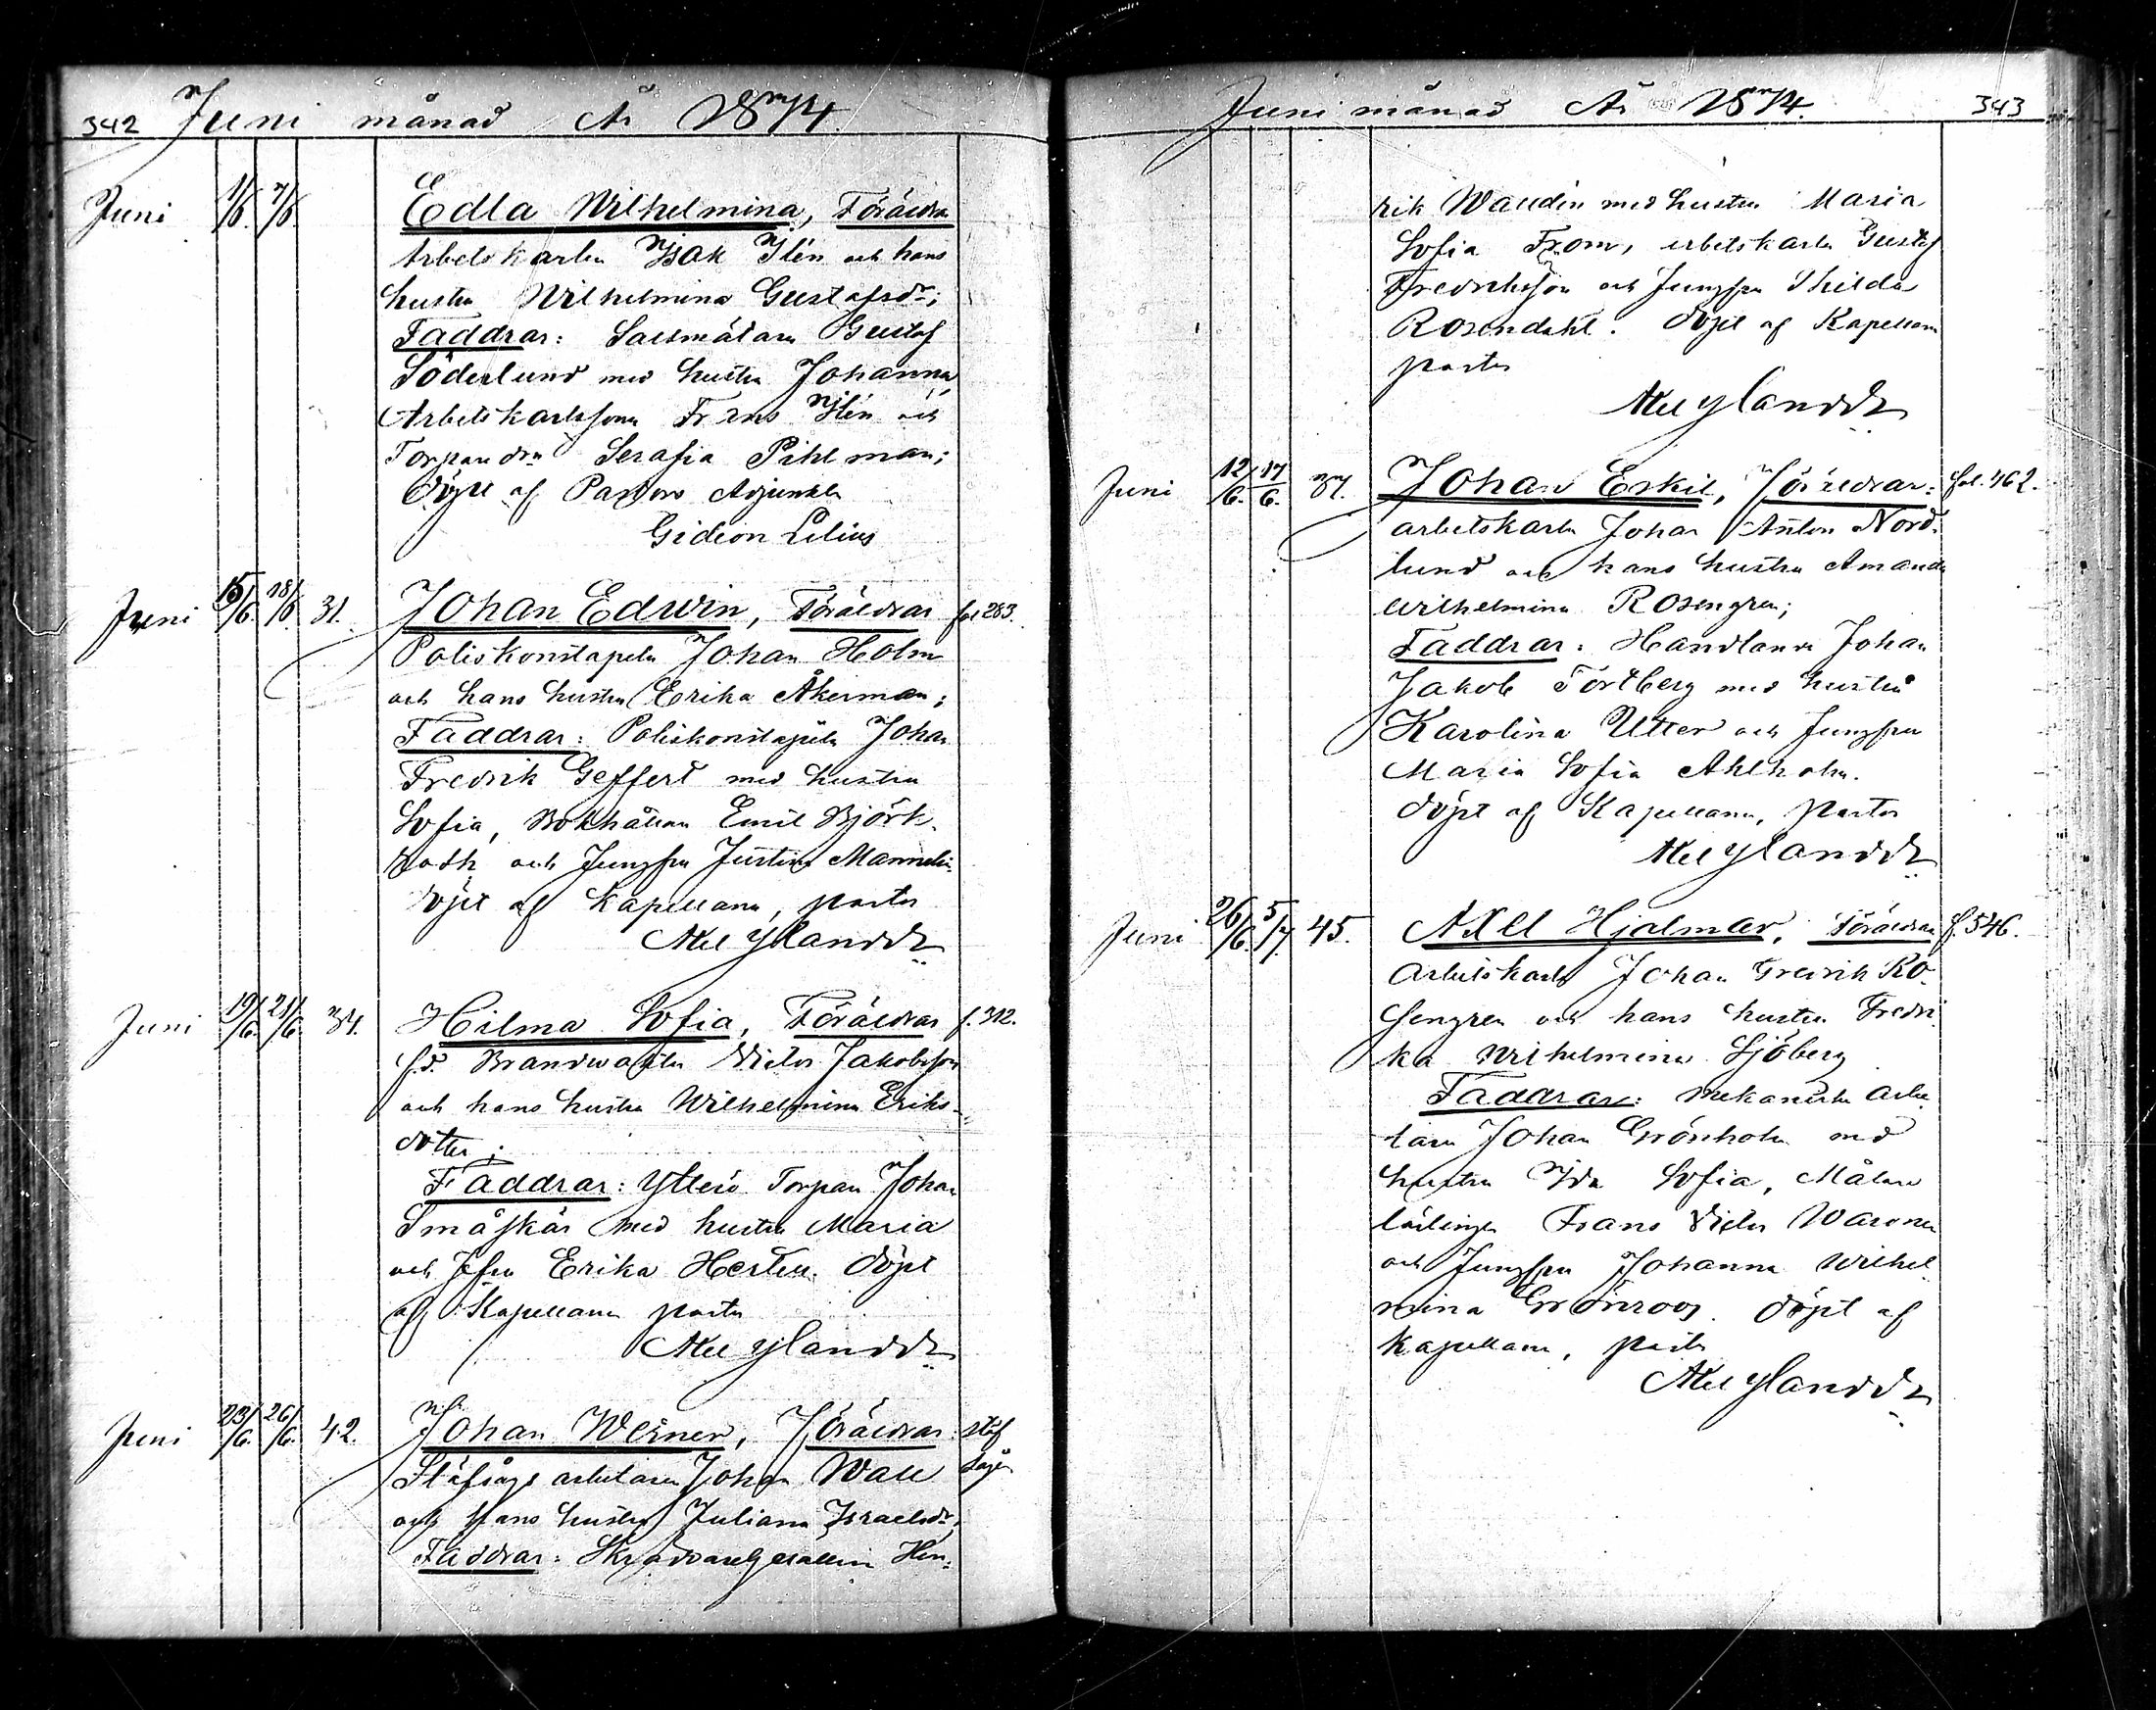 342 Juni månad År 1874.
Juni 1/6. 7/6. Edla Wilhelmina, Föräldrar
Arbetskarlen Isak Ilén och hans
hustru Wilhelmina Gustafsdr;
Faddrar: Saltmätaren Gustaf
Söderlund med hustru Johanna,
Arbetskarlssonen Frans Ilén och
Torparedrn Serafia Pihlman;
döpt af Pastors Adjunkten
Gideon Lilius
Juni 15/6. 18/6. 31. Johan Edwin, Föräldrar fol 283.
Poliskonstapeln Johan Holm
och hans hustru Erika Åkerman;
Faddrar: Poliskonstapeln Johan
Fredrik Geffert med hustru
Sofia, Bokhållaren Emil Björk-
roth och Jungfru Justina Mannelin
döpt af Kapellanen, pastor
Axel Ylander
Juni 19/6. 21/6. 34. Hilma Sofia, Föräldrar f. 312.
f.d. Brandwakten Victor Jakobsson
och hans hustru Wilhelmina Eriks-
dotter;
Faddrar: Ytterö Torparen Johan
Småskär med hustru Maria
och Jfru Erika Hertell. döpt
af Kapellanen pastor
Axel Ylander
Juni 23/6. 26/6. 42. Johan Werner, Föräldrar: stäf
Stäfsågs arbetaren Johan Wall sågen
och hans hustru Juliana Israelsdr,
Faddrar: Skräddaregesällen Hen-
Juni månad År 1874. 343
rik Waudin med hustru Maria
Sofia From, arbetskarlen Gustaf
Fredriksson och Jungfru Thilda
Rosendahl. döpt af Kapellanen
pastor
Axel Ylander
Juni 12/6. 17/6. 37. Johan Eskil, Föräldrar: fol. 462.
arbetskarlen Johan Anton Nord-
lund och hans hustru Amanda
Wilhelmina Rosengren;
Faddrar: Handlanden Johan
Jakob Törtberg med hustru
Karolina Utter och Jungfru
Maria Sofia Ahlholm.
döpt af Kapellanen, pastor
Axel Ylander
Juni 26/6. 5/7. 45. Axel Hjalmar, Föräldrar f. 546.
Arbetskarlen Johan Fredrik Ro-
sengren och hans hustru Fredri-
ka Wilhelmina Sjöberg
Faddrar: Mekaniske Arbe
taren Johan Grönholm med
hustru Ida Sofia, Målare
lärlingen Frans Victor Waronen
och Jungfru Johanna Wilhel
mina Grönroos. döpt af
Kapellanen, pastor
Axel Ylander